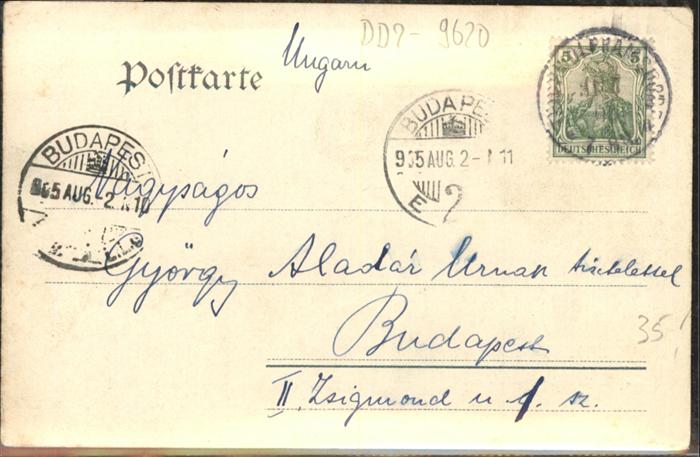 DD2-9620
Ungarn
Postkarte
5 5
DEUTSCHES REICH
BUDAPEST
905 AUG. 2 - 11
E 2
BUDAPEST
905 AUG. 2 10
Nagyságos
György Aladár Urnak tisztelettel
Budapest
35,
II. Zsigmond u. 1. sz.